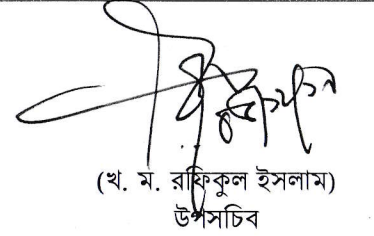 (খ. ম. রাফিকুল ইসলাম)
উপসচিব